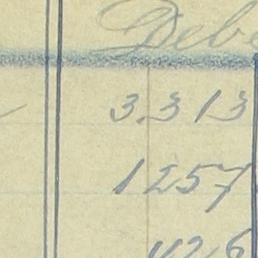 Debe
3.313
1257
426